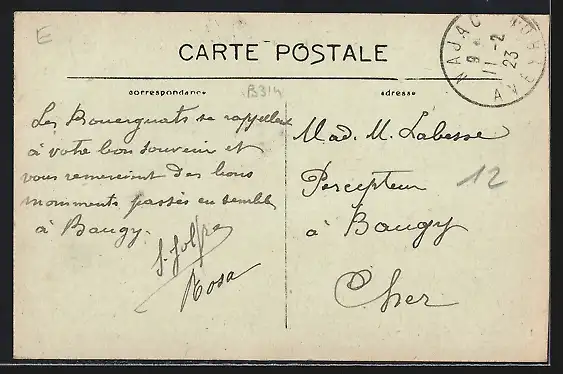 E
CARTE POSTALE
NAJAC
9 -
11 -2
23
AVEYRON
correspondance
B314
adresse
Les Rouerguats se rappellent
à votre bon souvenir et
vous remercient des bons
momments passés ensemble
à Baugy.
Rosa
Mad. M. Labesse
Percepteur
12
à Baugy
Cher